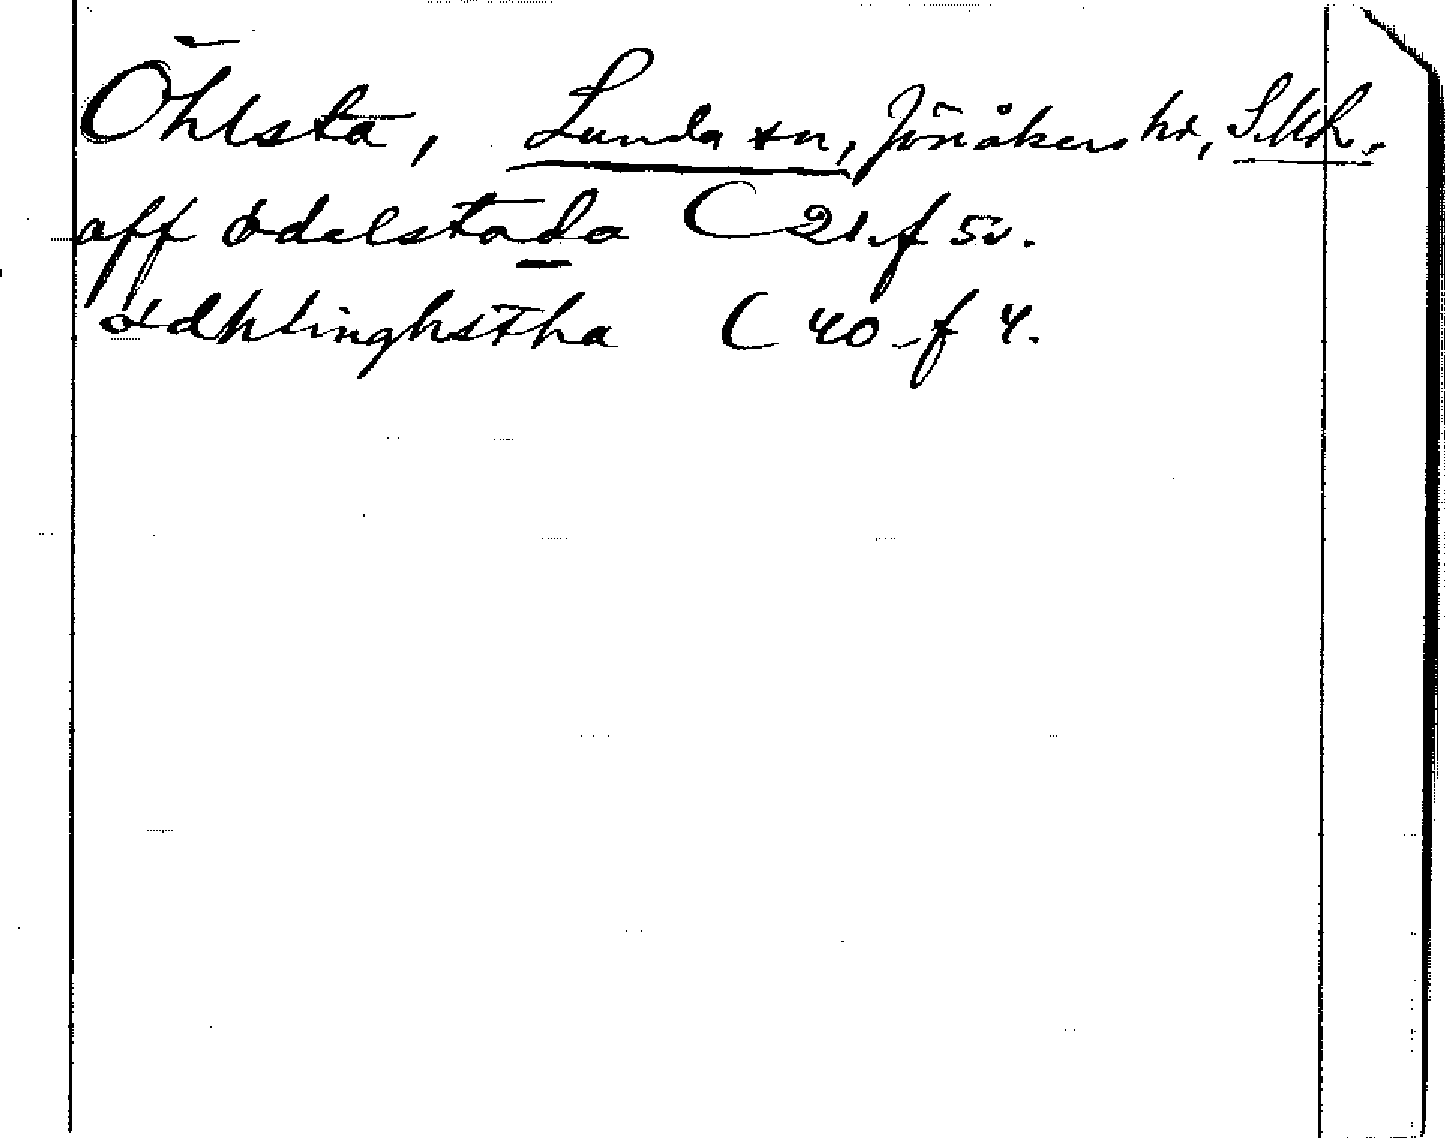 Öhlsta, Lunda sn, Jönåkers hd, S.M.L.
aff ødelstada C 21 f 5v.
ødhlinghstha C 40 f 4.